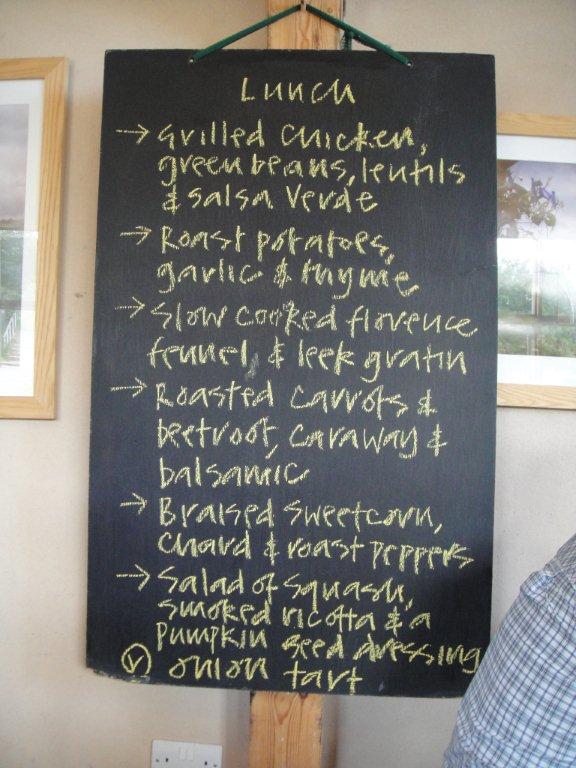 Lunch
→ Grilled chicken,
green beans, lentils
& salsa verde
→ Roast potatoes,
garlic & thyme
→ Slow cooked florence
fennel, & leek gratin
→ Roasted carrots &
beetroot, caraway &
balsamic
→ Braised sweetcorn,
chard & roast peppers
→ Salad of squash,
smoked ricotta & a
pumpkin seed dressing
Ⓥ onion tart